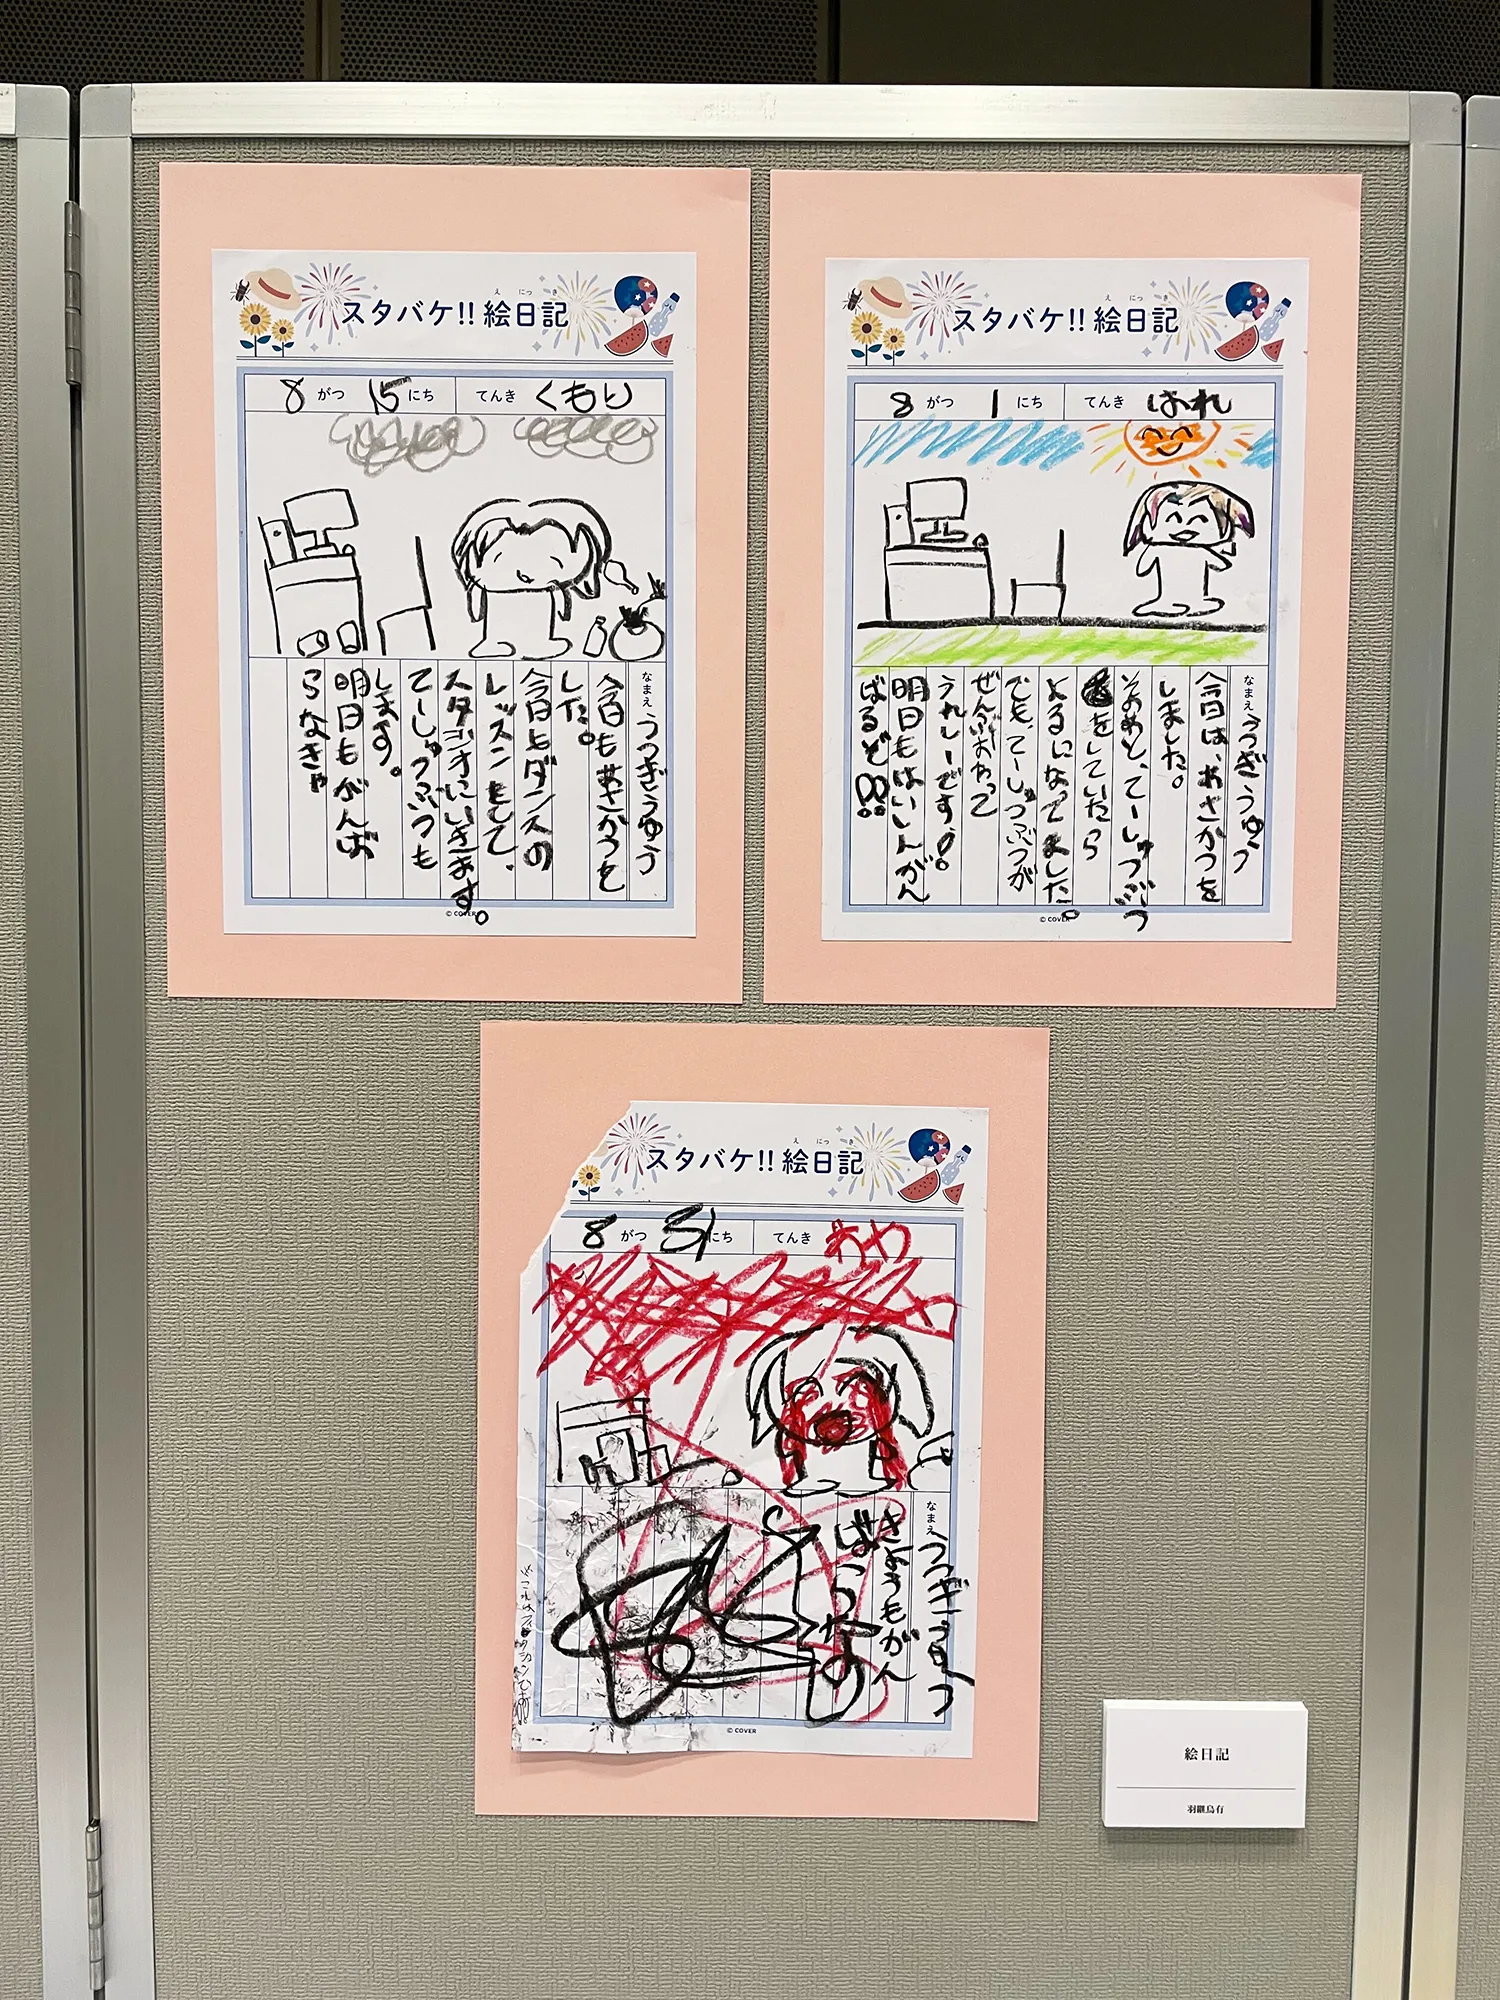 えにっき
スタバケ!! 絵日記
8 がつ 1 にち てんき はれ
なまえ うつぎうゆう
今日は、あさかつを
しました。
そのあと、てーしゅつぶつ
をしていたら
よるになってました。
でも、てーしゅつぶつが
ぜんぶおわって
うれしーです!。
明日もはいしんがん
ばるぞ!!
© COVER
えにっき
スタバケ!! 絵日記
8 がつ 15 にち てんき くもり
なまえ うつぎうゆう
今日もあさかつを
した。
今日もダンスの
レッスンをして、
スタジオにいきます。
てーしゅつぶつも
します。
明日もがんば
らなきゃ
© COVER
えにっき
スタバケ!! 絵日記
8 がつ 31 にち てんき
なまえ うつぎうゆう
きょうもがん
ばらな
※これはフィクション
© COVER
絵日記
羽継烏有